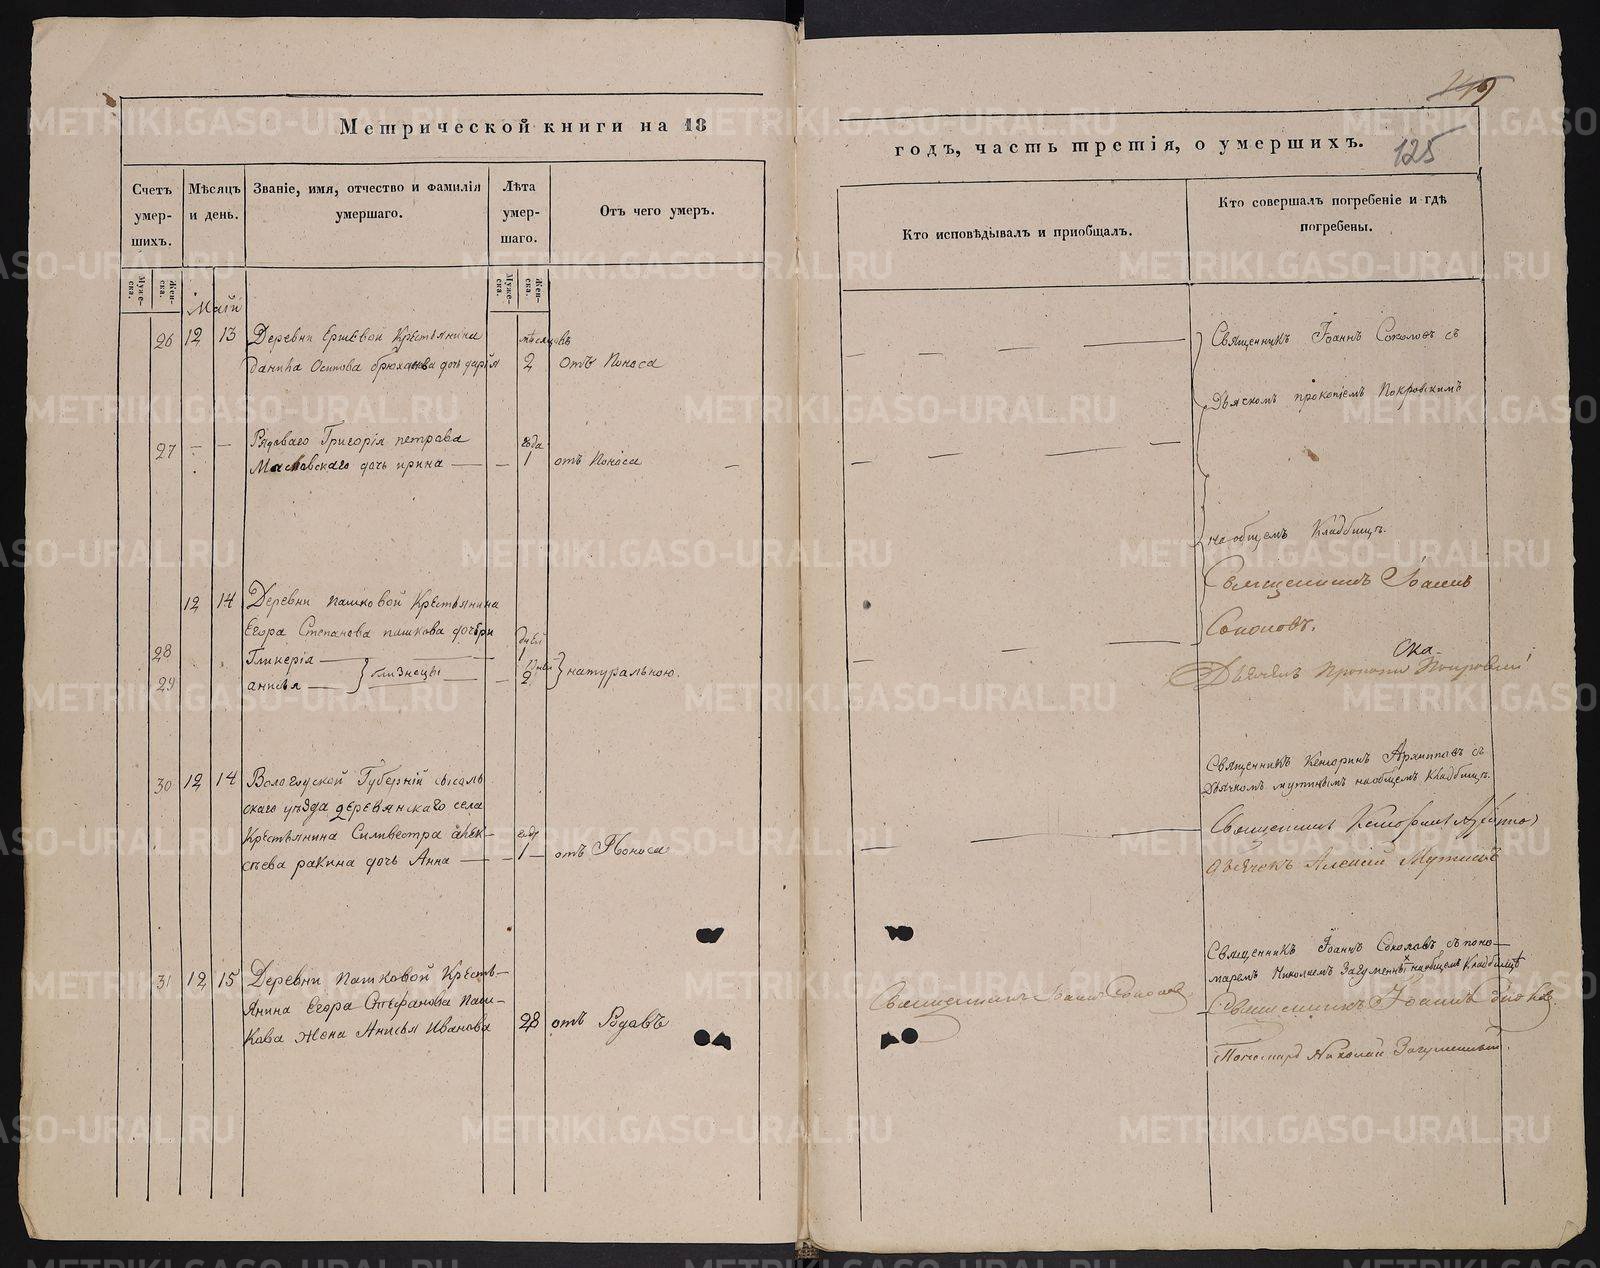 Метрической книги на 18
Счетъ умерших.
Мѣсяцъ и день.
Званіе, имя, отчество и фамилія умершаго.
Лѣта умершаго.
Отъ чего умеръ.
Мужеска.
Женска.
Мужеска.
Женска.
Маій
26 12 13 Деревни Ершевой Крестьянина мѣсяцовъ
Данила Осипова брюханова дочь дарія 2 отъ Поноса
27 — — Рядоваго Григорія петрова года
Масловскаго дочь ирина — — 1 отъ Поноса —
12 14 Деревни пашковой Крестьянина
Егора Степанова пашкова дочери дней
28 Гликерія — 1
29 анисья — близнецы — 2 натуральною.
30 12 14 Вологодской Губерніи сысоль
скаго уѣзда деревянскаго села
Крестьянина Силивестра алек— годъ
сѣева ракина дочь Анна — — 1 — отъ Поноса
31 12 15 Деревни Пашковой Кресть—
янина Егора Стефанова Паш—
кова жена Анисья Иванова 28 отъ Родовъ
149
годъ, часть третія, о умершихъ.
125
Кто исповѣдывалъ и приобщалъ.
Кто совершалъ погребеніе и гдѣ погребены.
Священникъ Іоаннъ Соколовъ съ
Дьячкомъ прокопіемъ Покровскимъ
на общемъ Кладбищъ.
Священникъ Іоаннъ
Соколовъ.
Дьячекъ Прокопи Покровскій
Священникъ Кенсоринъ Архиповъ съ
Дьячкомъ мутинымъ на общемъ Кладбищъ.
Священникъ Кенсоринъ
Дьячекъ Алексій Мутинъ
Священникъ Іоаннъ Соколовъ съ поно—
маремъ Николаемъ на общемъ Кладбищъ
Священникъ Іоаннъ Соколовъ
Священникъ Іоаннъ
Пономарь Николай
METRIKI.GASO-URAL.RU